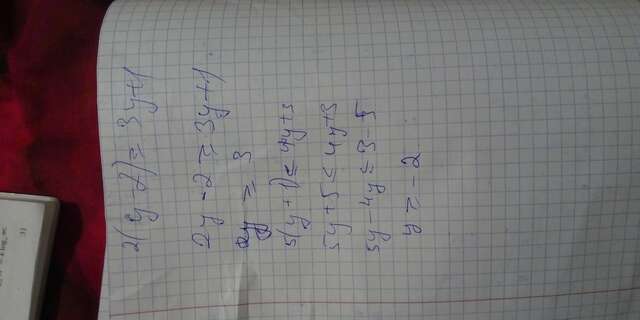 2(y-2) ≥ 3y+1
2y - 2 ≥ 3y+1
y ≥ 3
5(y+1) ≤ 4y+3
5y+5 ≤ 4y+3
5y-4y ≤ 3-5
y ≥ -2